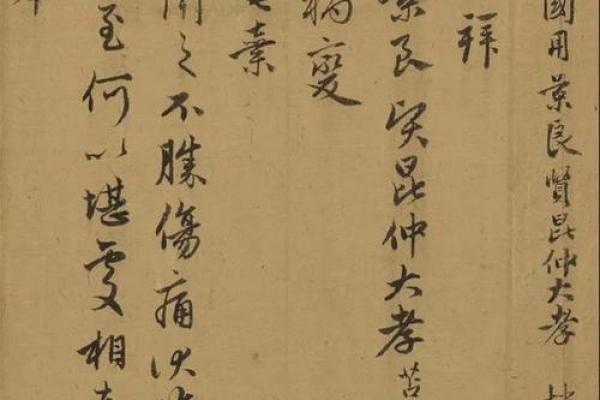 國用景良賢昆仲大孝
拜
景良賢昆仲大孝苫
禍變
棄
聞之不勝傷痛伏惟
至何以堪處相去